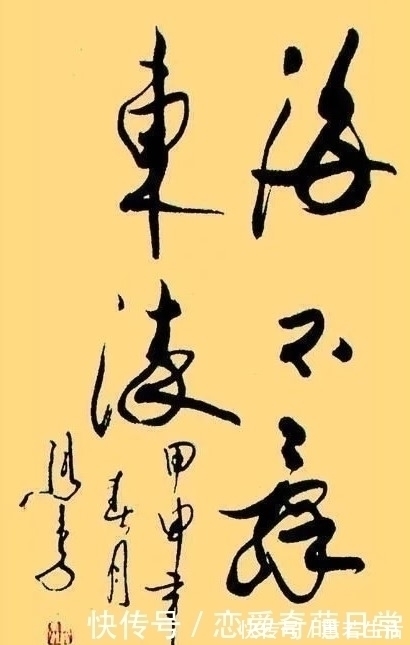 海不辭
東流
甲申年
春月
快传号 / 恋爱奇葩日常